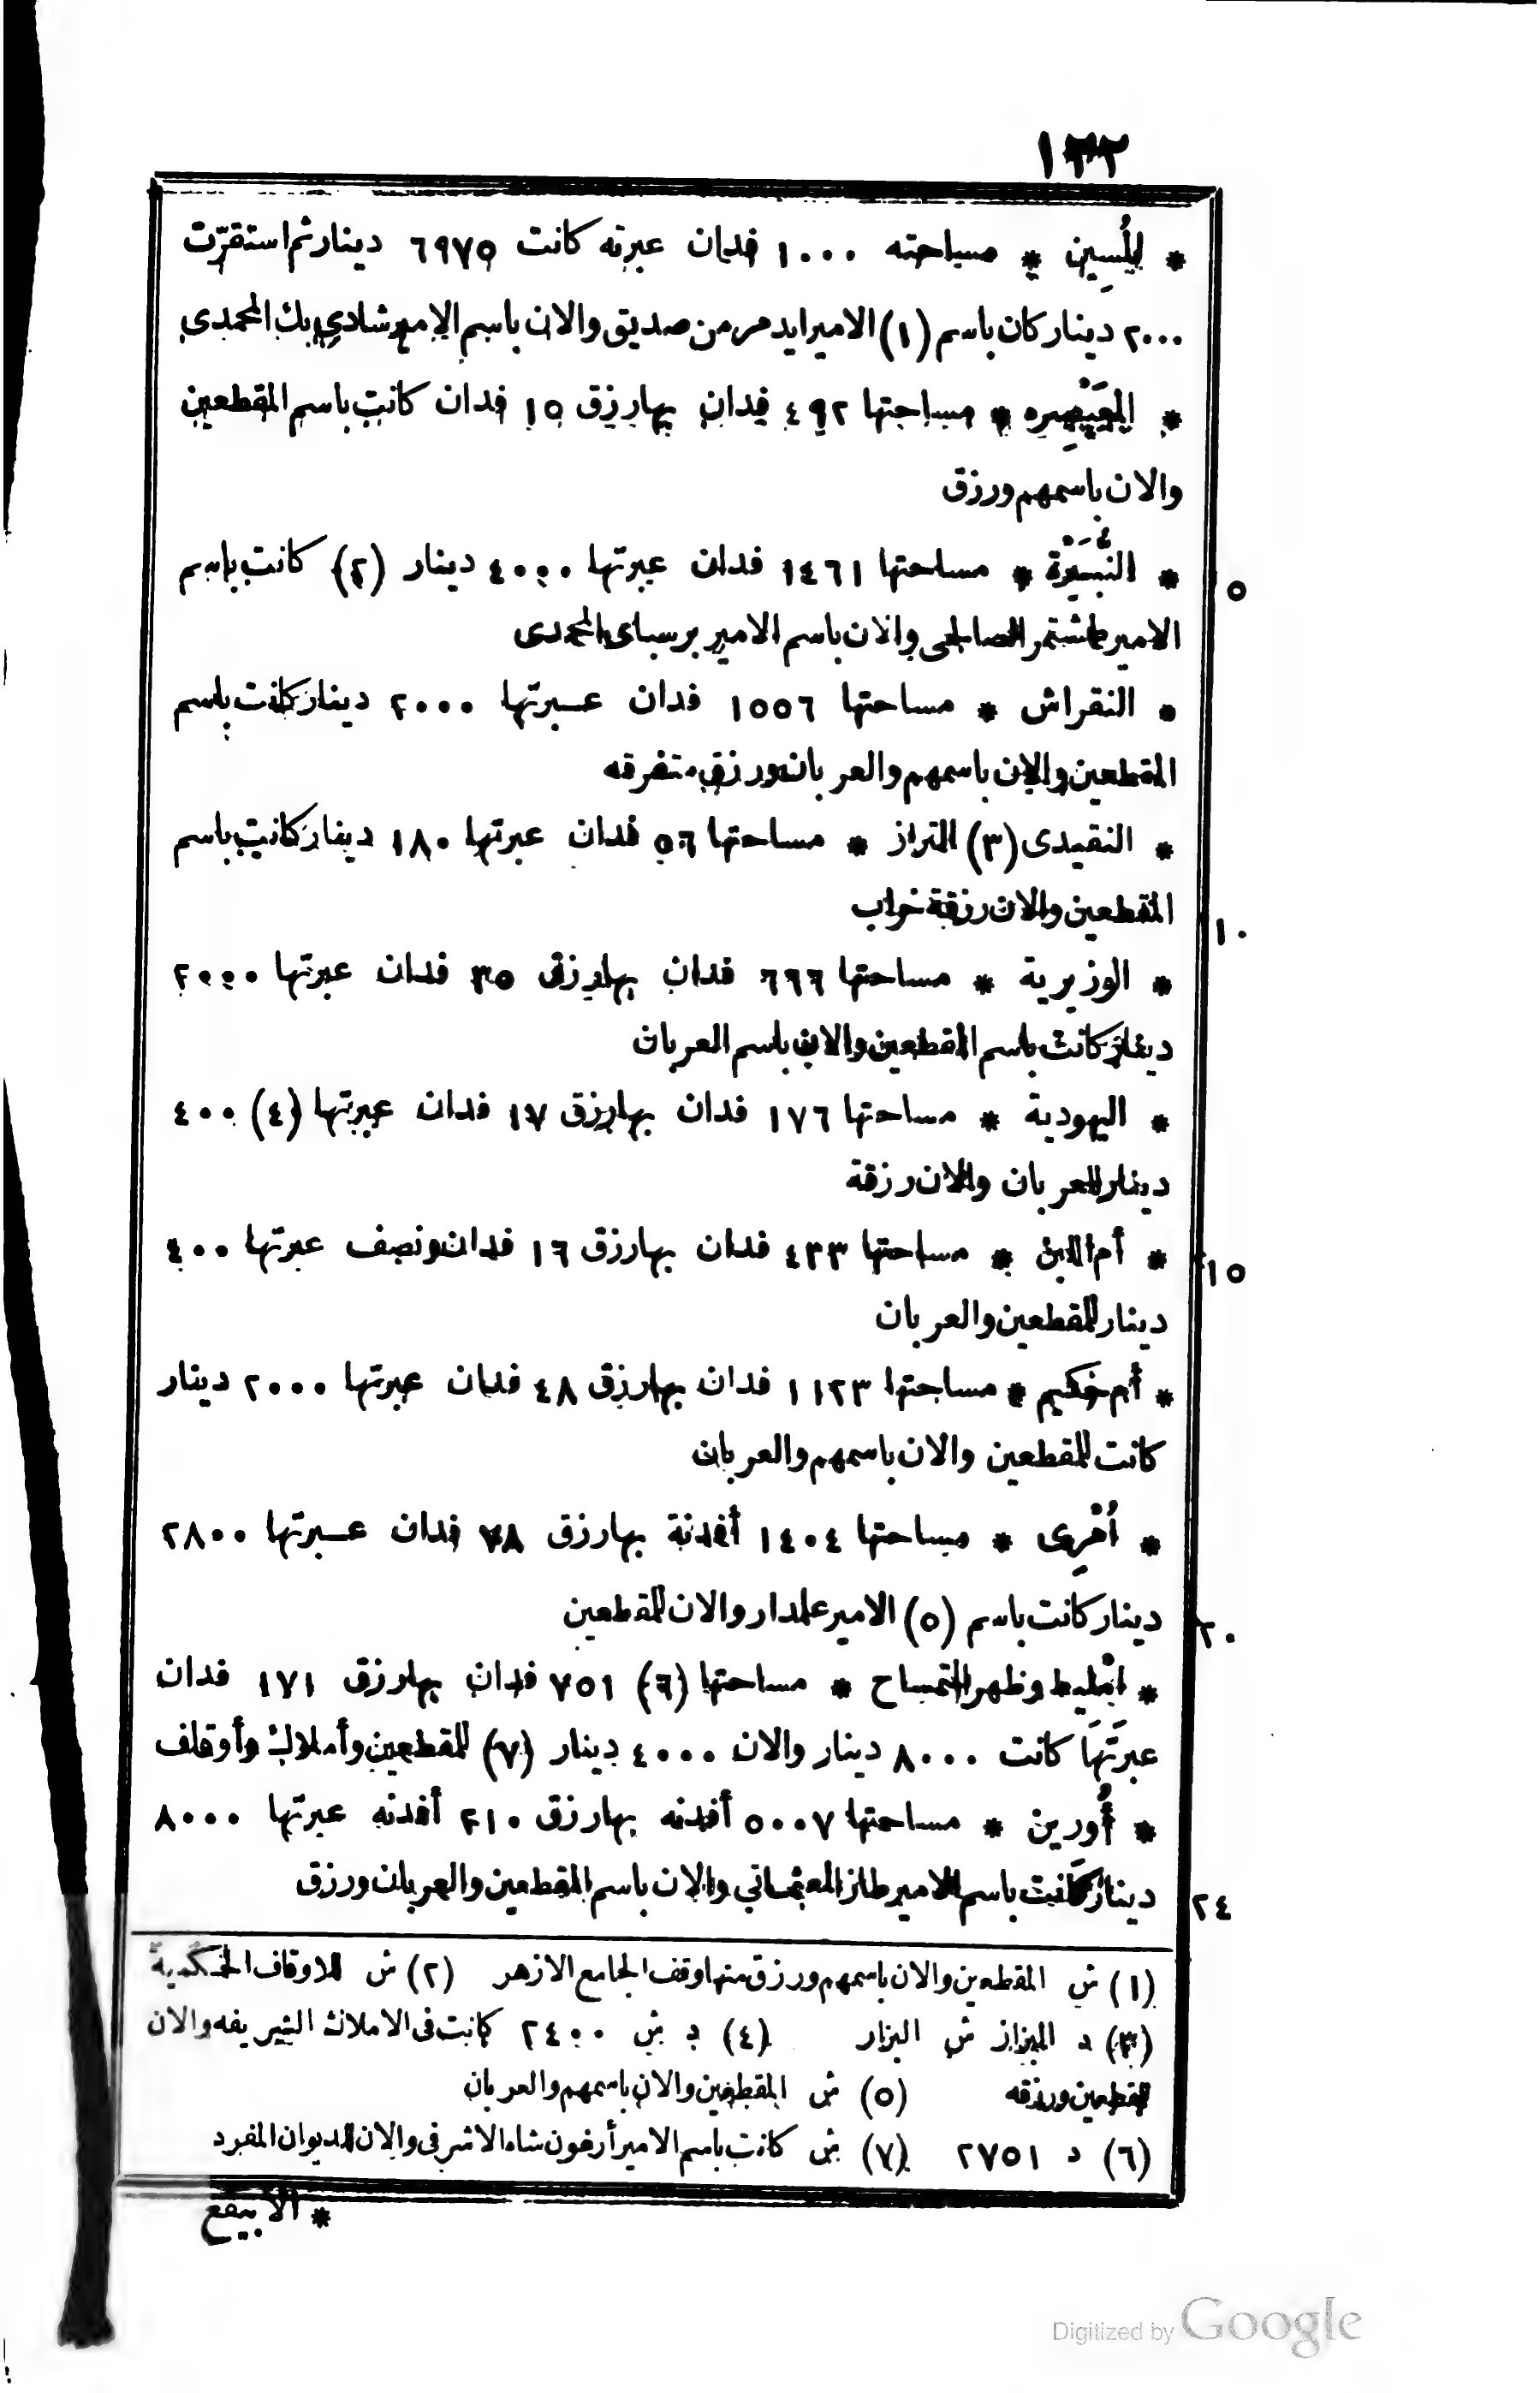 ١٣٢
* بلُسِين * مساحته ١٠٠٠ فدان عبرته كانت ٦٩٧٥ دينار ثم استقرّت
٢٠٠٠ دينار كان باسم (١) الامير ايدمر من صديق والان باسم الامير شادى بك المحمدى
* المعَيْصِره * مساحتها ٤٩٢ فدان بها رزق ١٥ فدان كانت باسم المقطعين
والان باسمهم ورزق
* النُّبَيرة * مساحتها ١٤٦١ فدان عبرتها ٤٠٠٠ دينار (٢) كانت باسم
الامير طاشتمر الصالحى والان باسم الامير برسباى المحمدى
* النقراش * مساحتها ١٥٥٦ فدان عبرتها ٢٠٠٠ دينار كانت باسم
المقطعين والان باسمهم والعربان ورزق متفرقه
* النقيدى (٣) التراز * مساحتها ٥٦ فدان عبرتها ١٨٠ دينار كانت باسم
المقطعين والان رزقة خراب
* الوزيرية * مساحتها ٦٦٦ فدان بها رزق ٣٥ فدان عبرتها ٢٠٠٠
دينار كانت باسم المقطعين والان باسم العربان
* اليهودية * مساحتها ١٧٦ فدان بها رزق ١٧ فدان عبرتها (٤) ٤٠٠
دينار للعربان والان رزقة
* أم اللبن * مساحتها ٤٣٣ فدان بها رزق ١٦ فدان ونصف عبرتها ٤٠٠
دينار للمقطعين والعربان
* أم حكيم * مساحتها ١١٢٣ فدان بها رزق ٤٨ فدان عبرتها ٢٠٠٠ دينار
كانت للمقطعين والان باسمهم والعربان
* أُمْرِى * مساحتها ١٤٠٤ أفدنة بها رزق ٧٨ فدان عبرتها ٢٨٠٠
دينار كانت باسم (٥) الامير علمدار والان للمقطعين
* امْليط وظهر التمساح * مساحتها (٦) ٧٥١ فدان بها رزق ١٧١ فدان
عبرتَهَا كانت ٨٠٠٠ دينار والان ٤٠٠٠ دينار (٧) للمقطعين وأملاك وأوقاف
* أُورين * مساحتها ٥٠٠٧ أفدنه بها رزق ٢١٠ أفدنه عبرتها ٨٠٠٠
دينار كانت باسم الامير طاز العثمانى والان باسم المقطعين والعربان ورزق
٥
١٠
١٥
٢٠
٢٤
(١) ش المقطعين والان باسمهم ورزق منها وقف الجامع الازهر (٢) ش للاوقاف الحكمية
(٣) د البزاز ش البزار (٤) د ش ٢٤٠٠ كانت فى الاملاك الشريفه والان
للمقطعين ورزقه (٥) ش المقطعين والان باسمهم والعربان
(٦) د ٢٧٥١ (٧) ش كانت باسم الامير أرغون شاه الاشرفى والان للديوان المفرد
* الابيقع
Digitized by Google